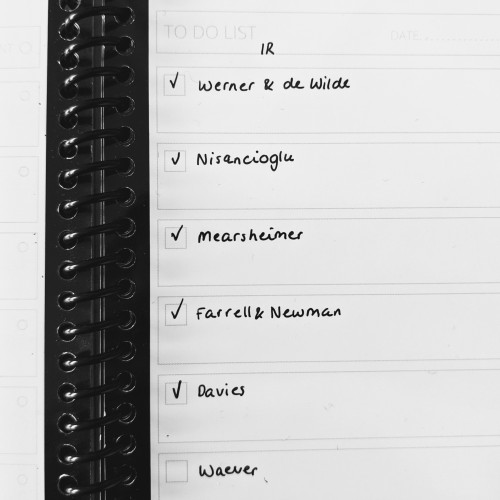 TO DO LIST
DATE
IR
Werner & de Wilde
Nisancioglu
Mearsheimer
Farrell & Newman
Davies
Waever